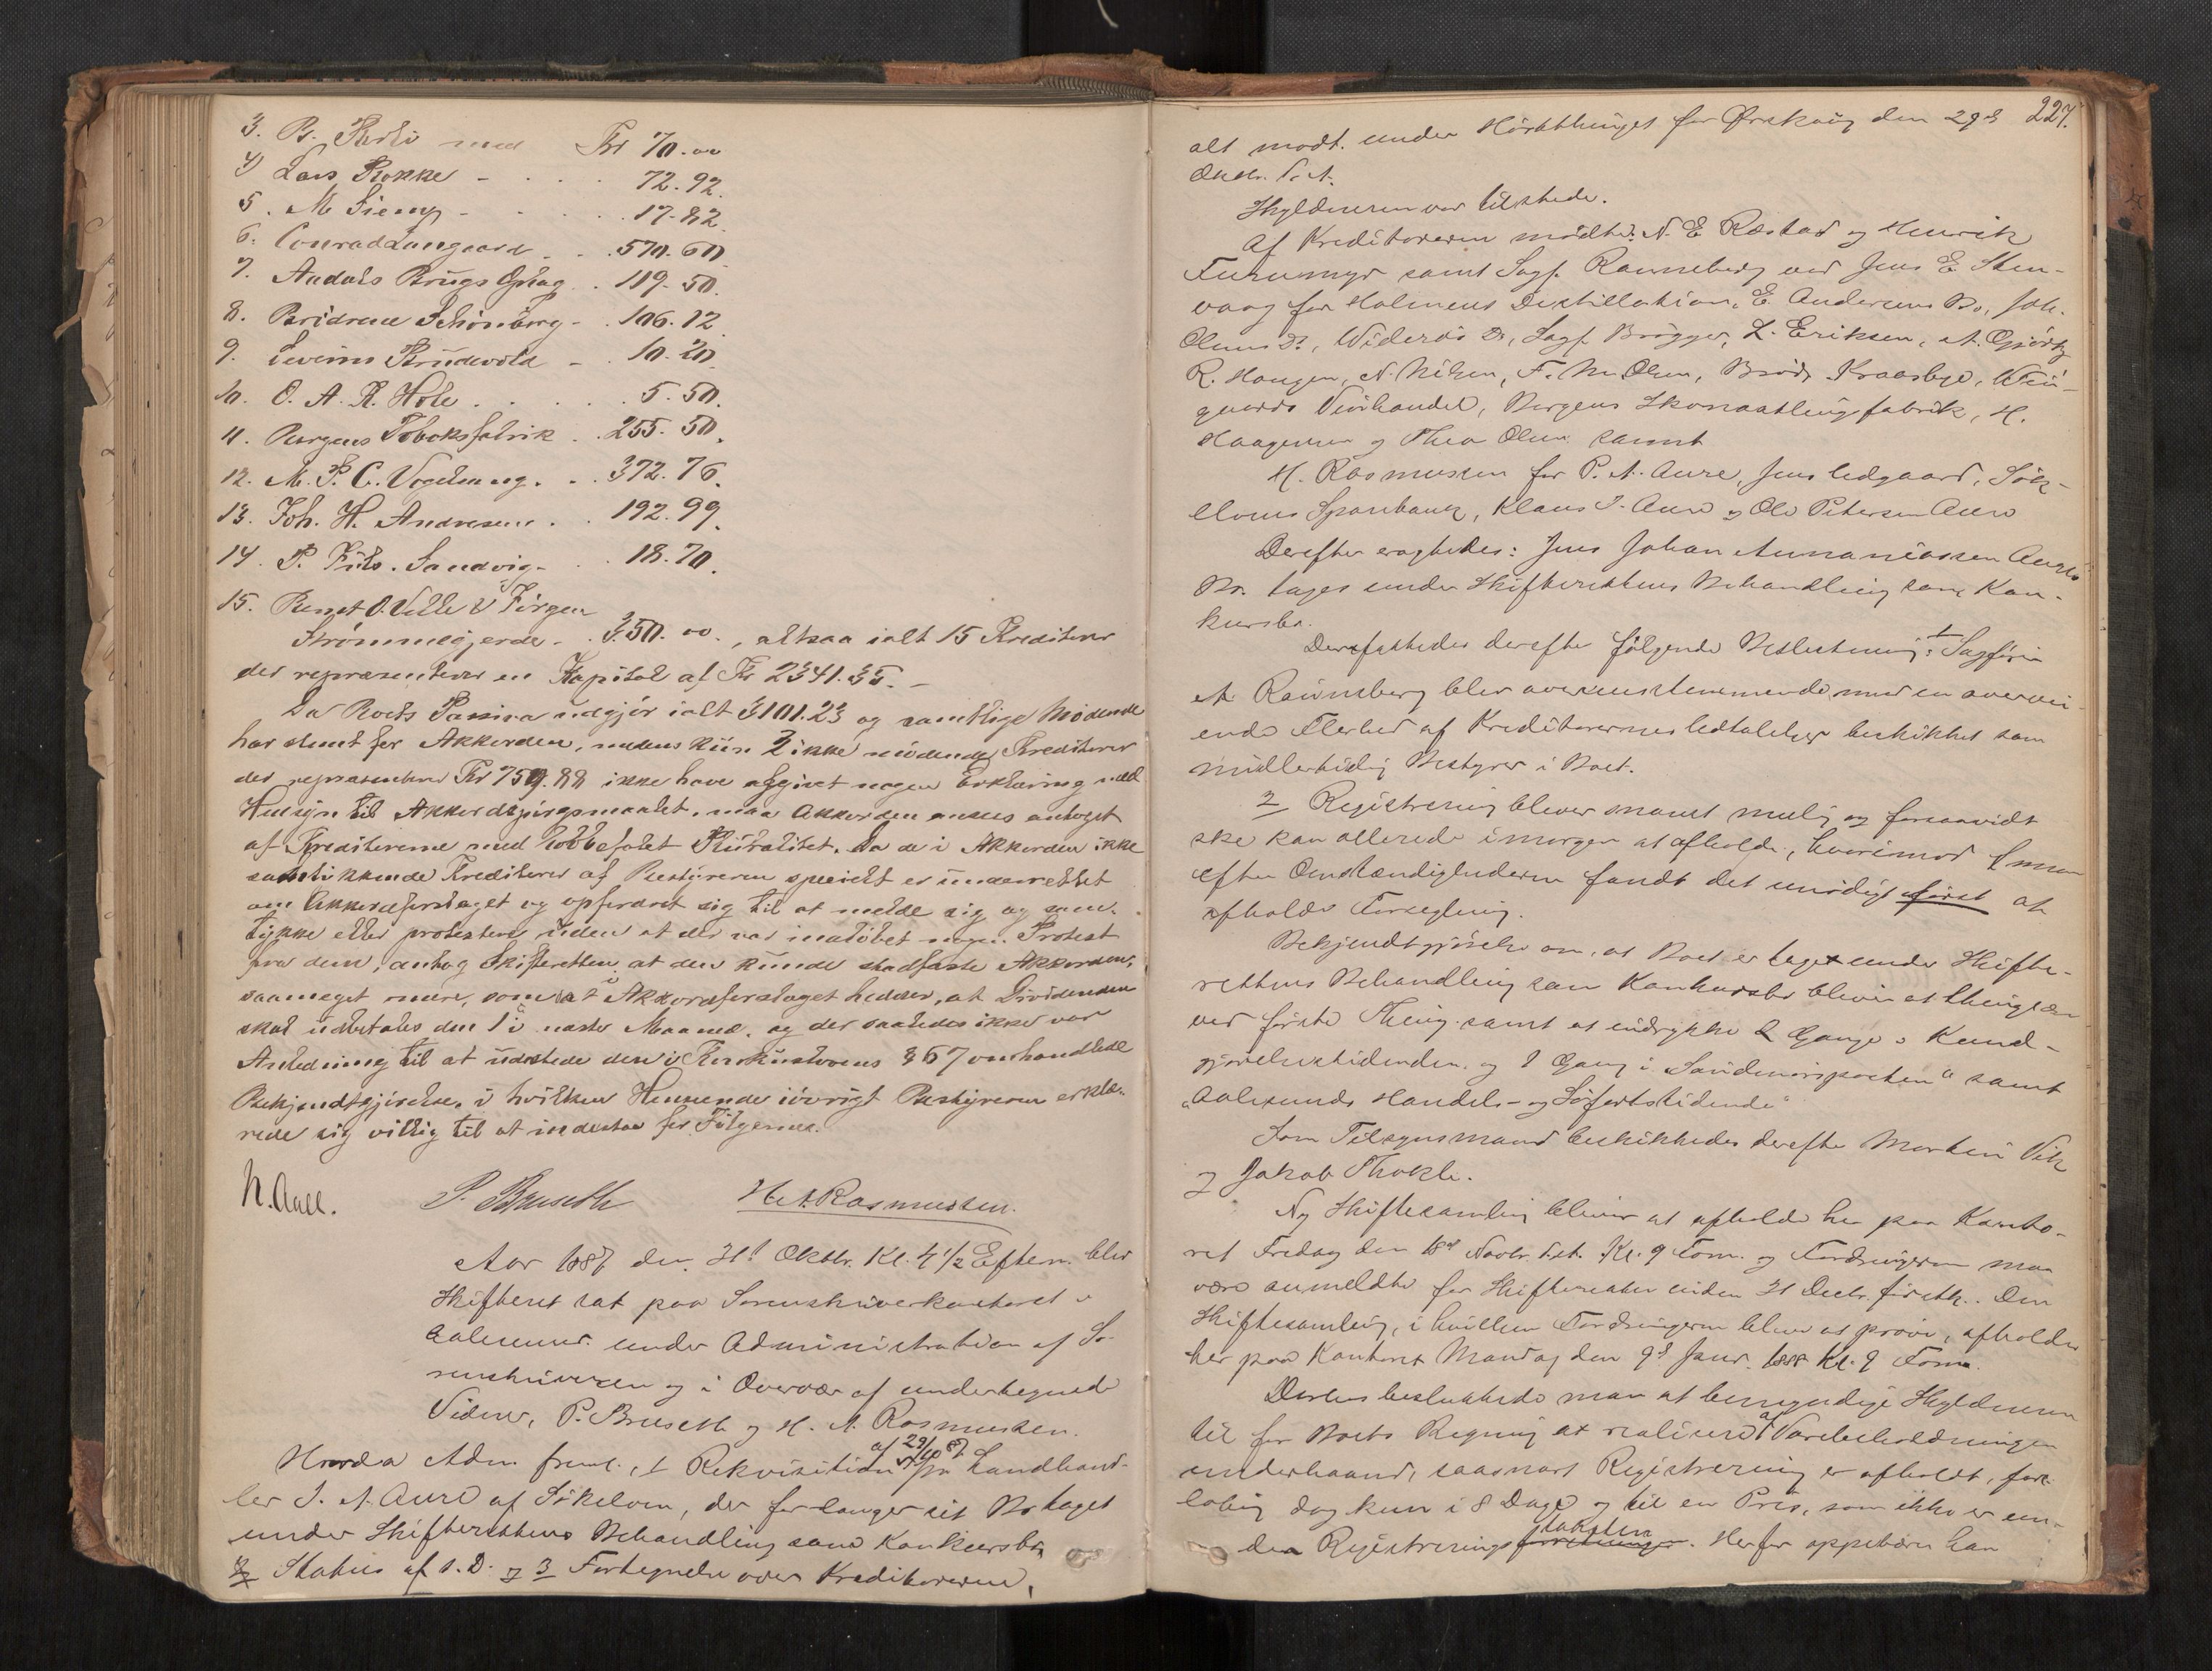 3. B. Roth med Kr 70.00
4) Lars Rokke - . . . 72.92.
5. M. Siem - . . . 17.82
6. Conrad Langaard . . 570.60
7. Aadals Brugs . 119.50.
8. Brødrene Schönberg - . 106.12
9. Severin Strudevold - . 10.20
10. O. A. R. Hole . . . . . 5.50.
11. Bergens Tobaksfabrik . . 255.50.
12. M. P. C. Vogelsang. . . 372.76.
13. Joh. H. Andresen . . 192.99.
14. P. Friis. Sandvig - . . 18.70.
15. Bernt O. Velle & Jørgen
Strømmegjerde . . 350.00., altsaa ialt 15 Kreditorer
der repræsenterer en Kapital af Kr 2341.35. -
Da Boets Passiva udgjør ialt 3101.23 og samtlige Mødende
har stemt for Akkorden, medens kun 2 ikke mødende Kreditorer
der repræsenterer Kr 759.88 ikke have afgivet nogen Erklæring med
Hensyn til Akkordspørgsmaalet, maa Akkorden ansees antaget
af Kreditorerne med lovbefalet Pluralitet. Da de i Akkorden ikke
samtykkende Kreditorer af Bestyreren specielt er underrettet
om Akkordforslaget og opfordret sig til at melde sig og sam-
tykke eller protestere uden at der var indløbet nogen Protest
fra dem, antog Skifteretten at den kunde stadfæste Akkorden,
saameget mere, som det i Akkordforslaget hedder, at Dividenden
skal udbetales den 1ste i næste Maaned, og der saaledes ikke var
Anledning til at udstede den i Konkurslovens § 67 omhandlede
Bekjendtgjørelse, i hvilken Henseende iøvrigt Bestyreren erklæ-
rede sig villig til at indestaa for Følgerne.
N. Aall. P. Bruseth H. A. Rasmussen.
Aar 1887 den 31te Oktbr. Kl. 4 1/2 Efterm. blev
Skifteret sat paa Sorenskriverkontoret i
Aalesund under Administration af So-
renskriveren og i Overvær af undertegnede
Vidner, P. Bruseth og H. A. Rasmussen.
Hvorda Adm. freml., 1 Rekvisition af 29/10 87 fra Landhand-
ler J. A. Aure af Sökelven, der forlanger sit Bo taget
under Skifterettens Behandling som Konkursbo,
2 Status af s. D. og 3 Fortegnelse over Kreditorerne,
227.
alt modt. under Høstthinget for Ørskoug den 29de
Oktbr. d. A.
Skyldneren var tilstede.
Af Kreditorerne mødte: N. E. Ræstad og Henrik
Furumyr samt Sagf. Ranneberg ved Jens E. Sten-
vaag for Holmens Destillation, E. Andersens Bo, Joh.
Olsen, Widerøe, Sagf. Brøgger, L. Eriksen, A. Gjørtz
R. Haugen, N. Nilsen, F. M. Olsen, Brødr Kraasbye,
gaards Vinhandel, Bergens Skomaatlingfabrik, H.
Haagensen og Thea Olsen samt
H. Rasmussen for P. A. Aure, Jens Ledgaard, Søk-
elvens Sparebank, Klaus J. Aure og Ole Petersen Aure
Derefter eragtedes: Jens Johan Annaniassen Aures
Bo tages under Skifterettens Behandling som Kon-
kursbo.
Der fattedes derefter følgende Beslutning: 1 Sagfører
A. Ranneberg blev overensstemmende med en overvei-
ende Flerhed af Kreditorernes Udtalelser beskikket som
midlertidig Bestyrer i Boet.
2 Registrering bliver snarest mulig og forsaavidt
ske kan allerede imorgen at afholde, hvorimod man
efter Omstændighederne fandt det unødigt først at
afholde Forsegling.
Bekjendtgjørelse om, at Boet er taget under Skifte-
rettens Behandling som Konkursbo bliver at thinglæse
ved første Thing samt at indrykke 2 Gange i Kund-
gjørelsestidenden og 1 Gang i "Søndmørsposten" samt
"Aalesunds Handels- og Søfartstidende"
Som Tilsynsmænd beskikkedes derefter Morten Vik
og Jakob Thokle.
Ny Skiftesamling bliver at afholde her paa Konto-
ret Fredag den 18de Novbr. d. A. Kl. 9 Form. og Fordringerne maa
være anmeldte for Skifteretten inden 31 Decbr. førstk. Den
Skiftesamling, i hvilken Fordringerne bliver at prøve, afholdes
her paa Kontoret Mandag den 9de Janr. 1888 Kl. 9 Form.
Derhos besluttede man at bemyndige Skyldneren
til for Boets Regning at realisere af Varebeholdningen
underhaand, saasnart Registrering er afholdt, fore-
løbig dog kun i 8 Dage og til en Pris, som ikke er un-
der Registrerings forretningen taksten. Herfor oppebærer han